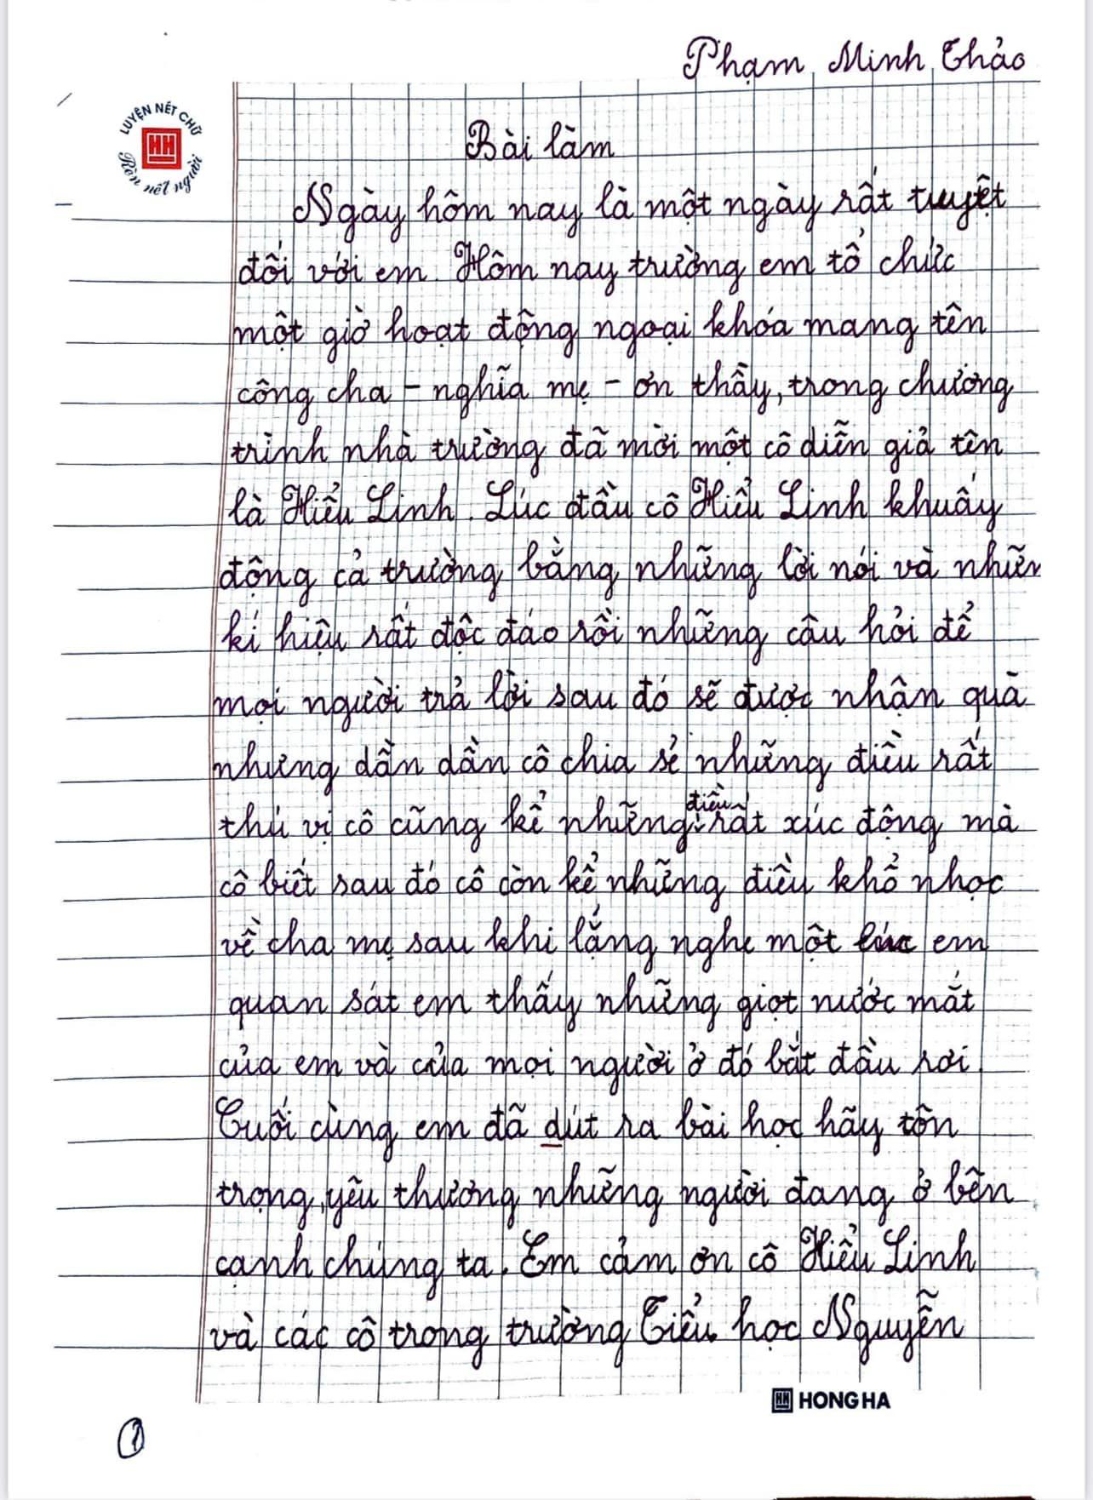 Phạm Minh Thảo
LUYỆN NÉT CHỮ
HH
Rèn nết người
Bài làm
Ngày hôm nay là một ngày rất tuyệt
đối với em. Hôm nay trường em tổ chức
một giờ hoạt động ngoại khóa mang tên
công cha - nghĩa mẹ - ơn thầy, trong chương
trình nhà trường đã mời một cô diễn giả tên
là Hiểu Linh. Lúc đầu cô Hiểu Linh khuấy
động cả trường bằng những lời nói và nhữn
kí hiệu rất độc đáo rồi những câu hỏi để
mọi người trả lời sau đó sẽ được nhận quà
nhưng dần dần cô chia sẻ những điều rất
thú vị cô cũng kể những điều rất xúc động mà
cô biết sau đó cô còn kể những điều khổ nhọc
về cha mẹ sau khi lắng nghe một lúc em
quan sát em thấy những giọt nước mắt
của em và của mọi người ở đó bắt đầu rơi.
Cuối cùng em đã dút ra bài học hãy tôn
trọng, yêu thương những người đang ở bên
cạnh chúng ta. Em cảm ơn cô Hiểu Linh
và các cô trong trường Tiểu học Nguyễn
HH HONG HA
1